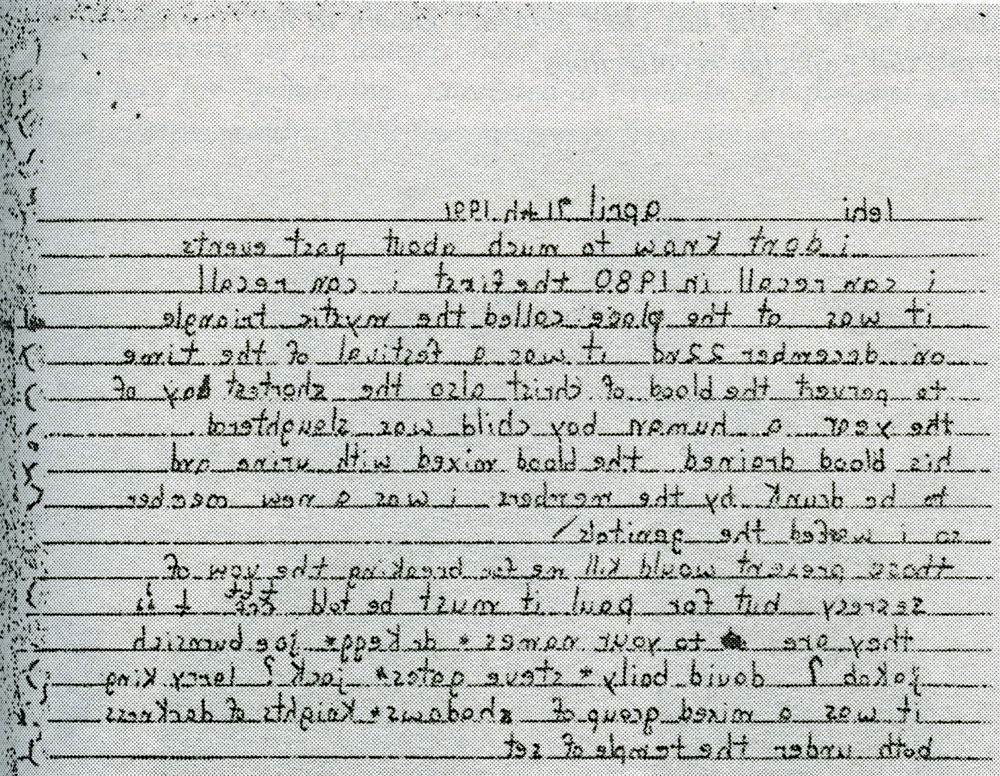 lehi april 1991
i dont know to much about past events
i can recall in 1980 the first i can recall
it was at the place called the mystic triangle
on december 22nd it was a festival of the time
to pervert the blood of christ also the shortest day of
the year a human boy child was slaughterd
his blood drained the blood mixed with urine and
to be drunk by the members i was a new
so i the genitals
those present would kill me for breaking the vow of
but for paul it must be told
they are to your names * joe
jakob ? david baily * steve gates * jack ? larry king
it was a mixed group of shadows * knights of darkness
both under the temple of set